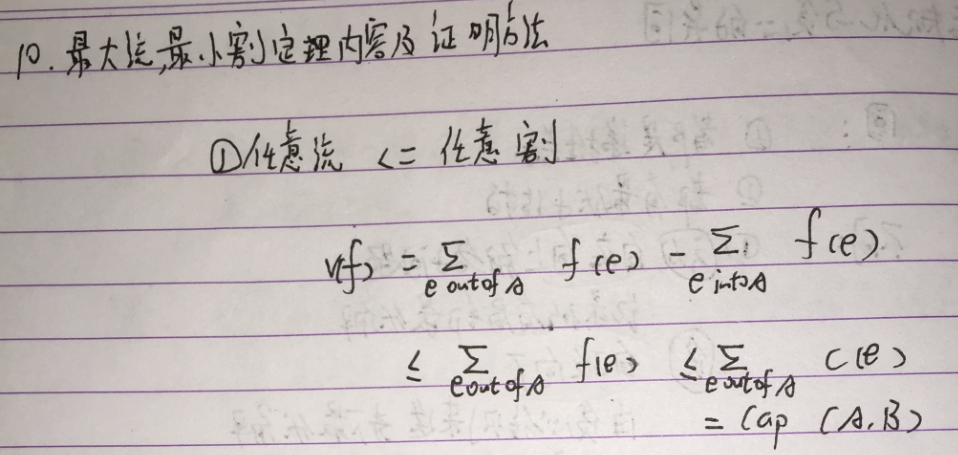 10. 最大流,最小割定理内容及证明方法
①任意流 <= 任意割
v(f) = ∑ e out of A f(e) - ∑ e into A f(e)
≤ ∑ e out of A f(e) ≤ ∑ e out of A c(e)
= Cap (A,B)